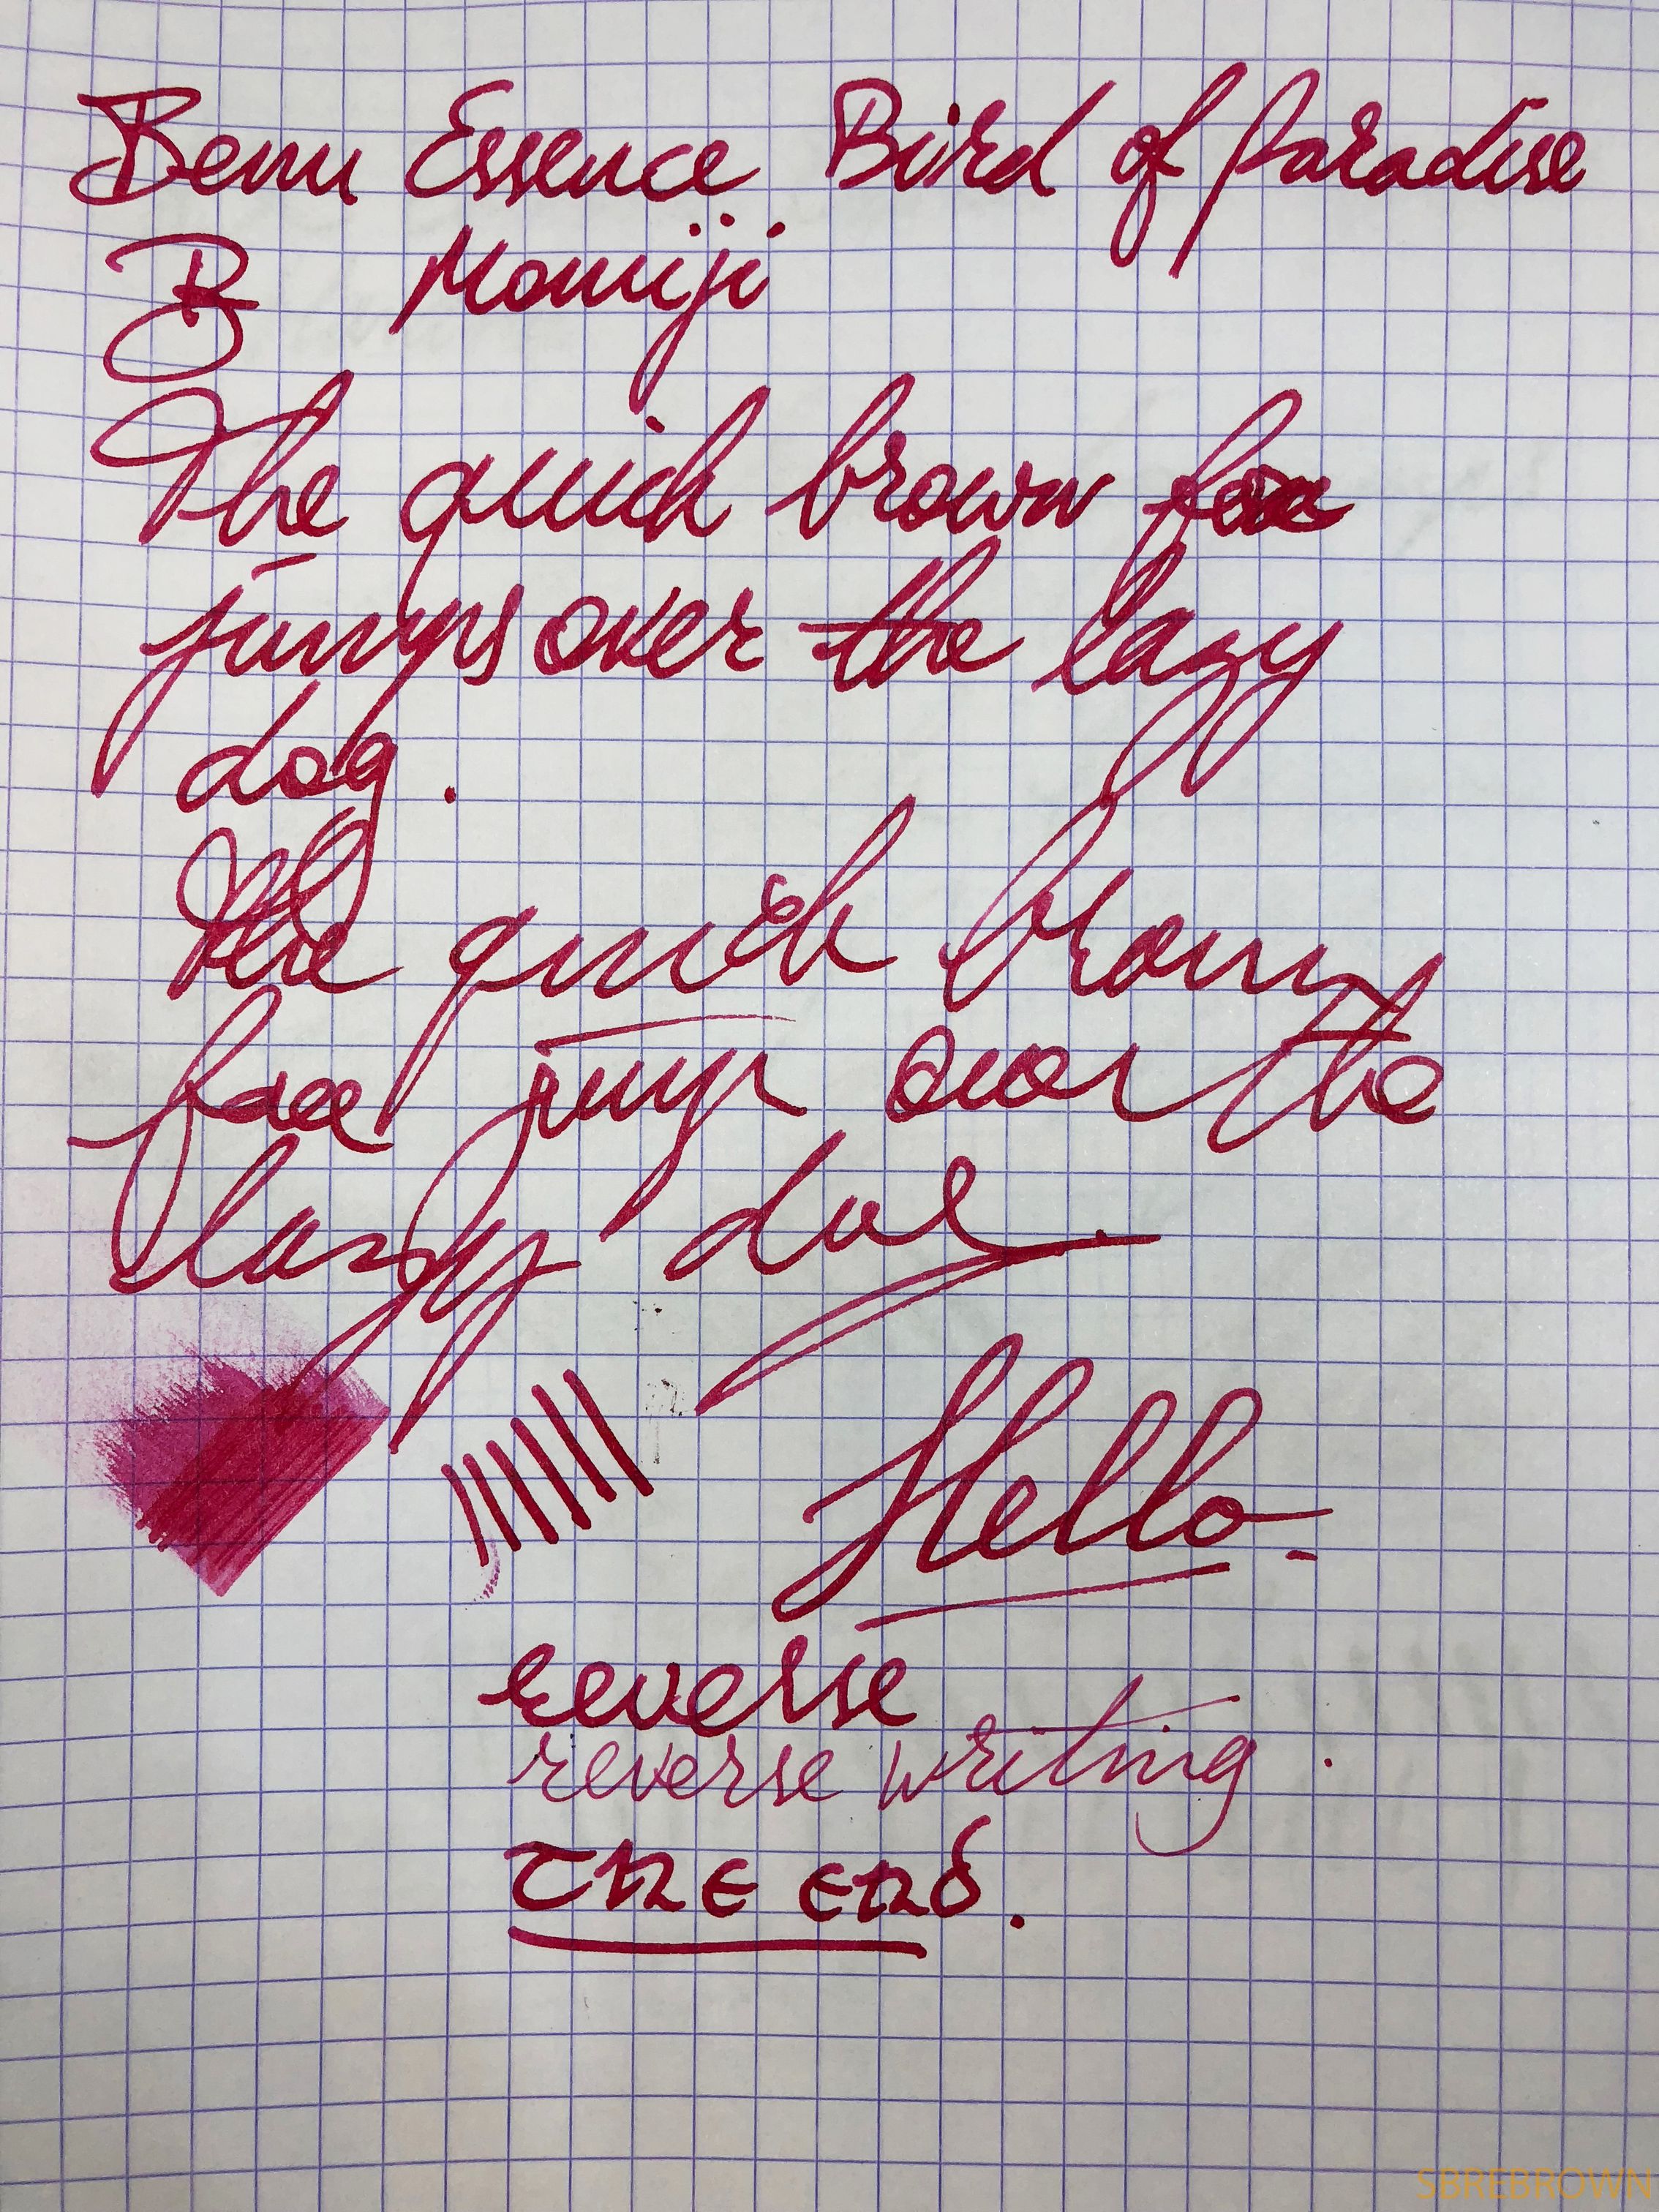 Benu Essence Bird of Paradise
B Momiji
The quick brown fox
jumps over the lazy
dog.
The quick brown
fox jumps over the
lazy dog.
Hello.
reverse
reverse writing.
THE END.
SBREBROWN